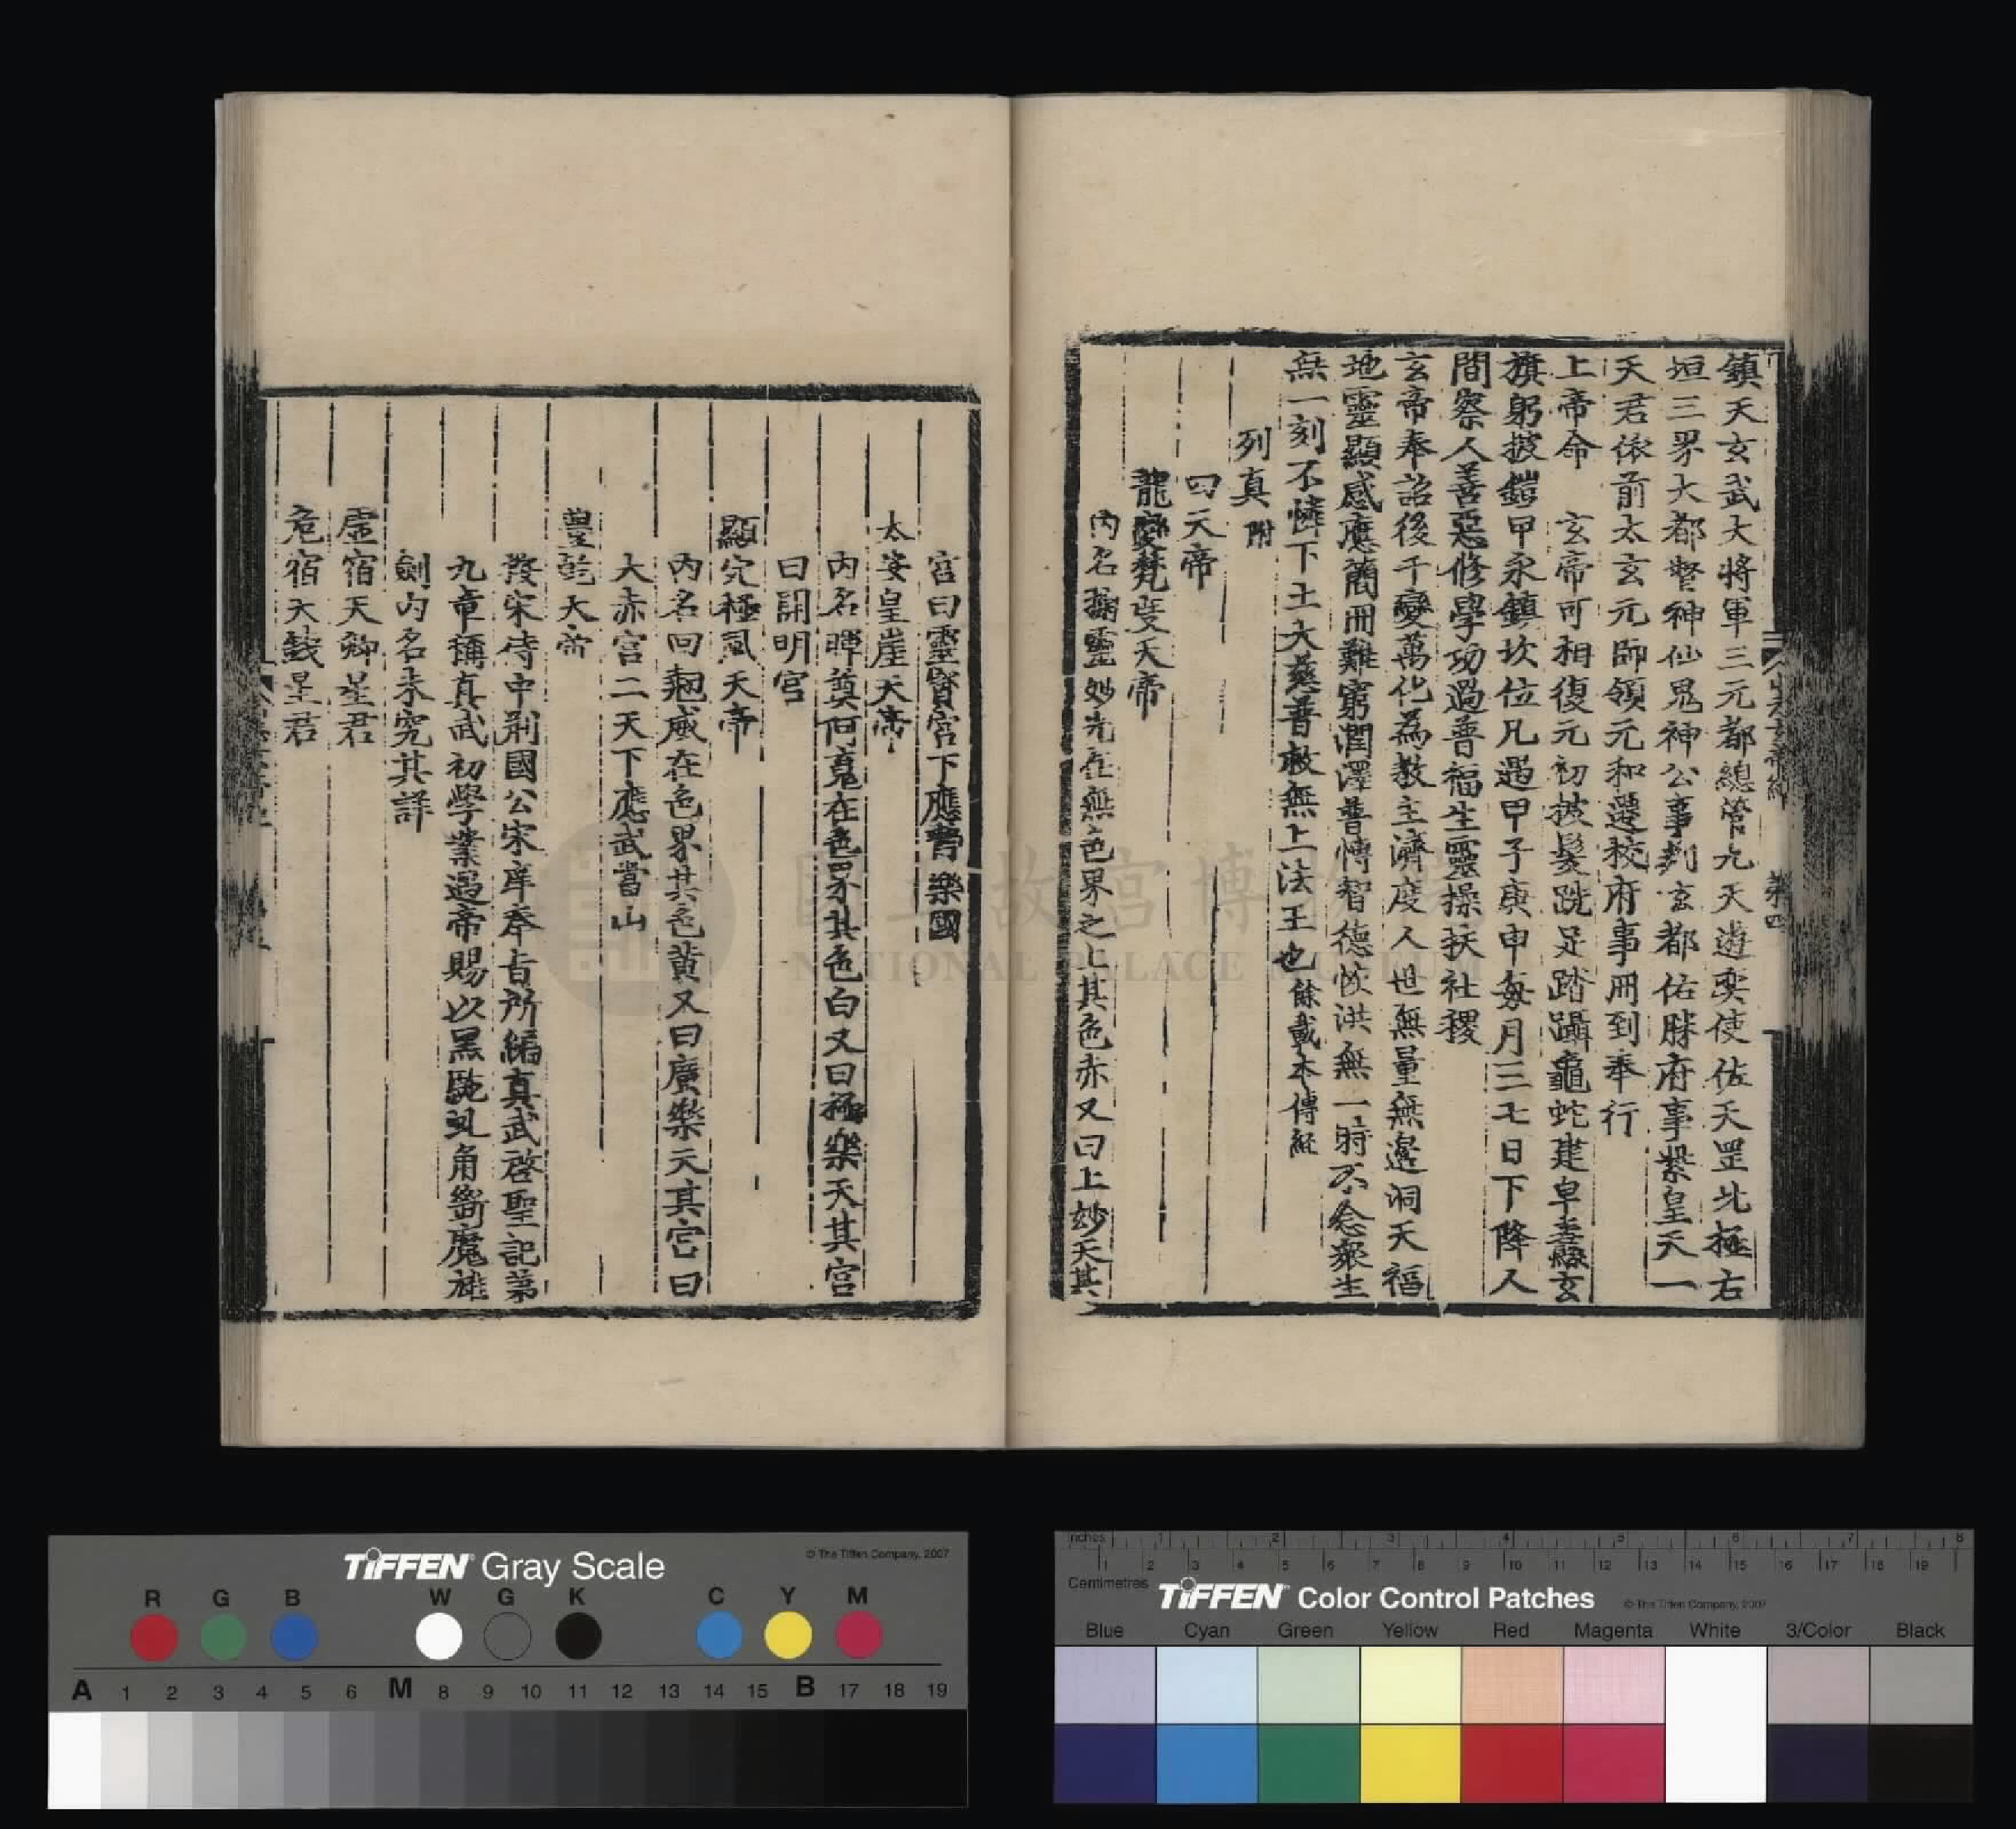 鎮天玄武大將軍三元都總管九天遊奕使佐天罡北極右
垣三界大都督神仙鬼神公事判玄都佑勝府事紫皇天一
天君依前太玄元帥領元和遷校府事冊到奉行
上帝命 玄帝可相復元初披髮跣足踏躡龜蛇建皂纛玄
旗躬披鎧甲永鎮坎位凡遇甲子庚申每月三七日下降人
間察人善惡修學功過普福生靈操扶社稷
玄帝奉詔後千變萬化為教主濟度人世無量無邊洞天福
地靈顯感應簡冊難窮潤澤普慱智德恢洪無一時不念衆生
無一刻不憐下土大慈普救無上法王也餘載本傳經
列真附
四天帝
龍變梵度天帝
內名 靈妙光在無色界之上其色赤又曰上妙天其
宮曰靈寳宮下應 樂國
太安皇崖天帝
內名暉 阿 在色界其色白又曰極樂天其宮
曰開明宮
顯定極風天帝
內名回 威在色界其色黃又曰廣樂天其宮曰
大赤宮二天下應武當山
豐乾大帝
按宋侍中荆國公宋庠奉旨所編真武啓聖記第
九章稱真武初學業遇帝賜以黑駞虬角 魔雄
劍內名未究其詳
虛宿天卿星君
危宿天錢星君
TIFFEN Gray Scale
© The Tiffen Company, 2007
R G B W G K C Y M
A 1 2 3 4 5 6 M 8 9 10 11 12 13 14 15 B 17 18 19
inches 1 2 3 4 5 6 7 8
1 2 3 4 5 6 7 8 9 10 11 12 13 14 15 16 17 18 19
Centimetres
TIFFEN Color Control Patches
© The Tiffen Company, 2007
Blue Cyan Green Yellow Red Magenta White 3/Color Black
國立故宮博物院
NATIONAL PALACE MUSEUM